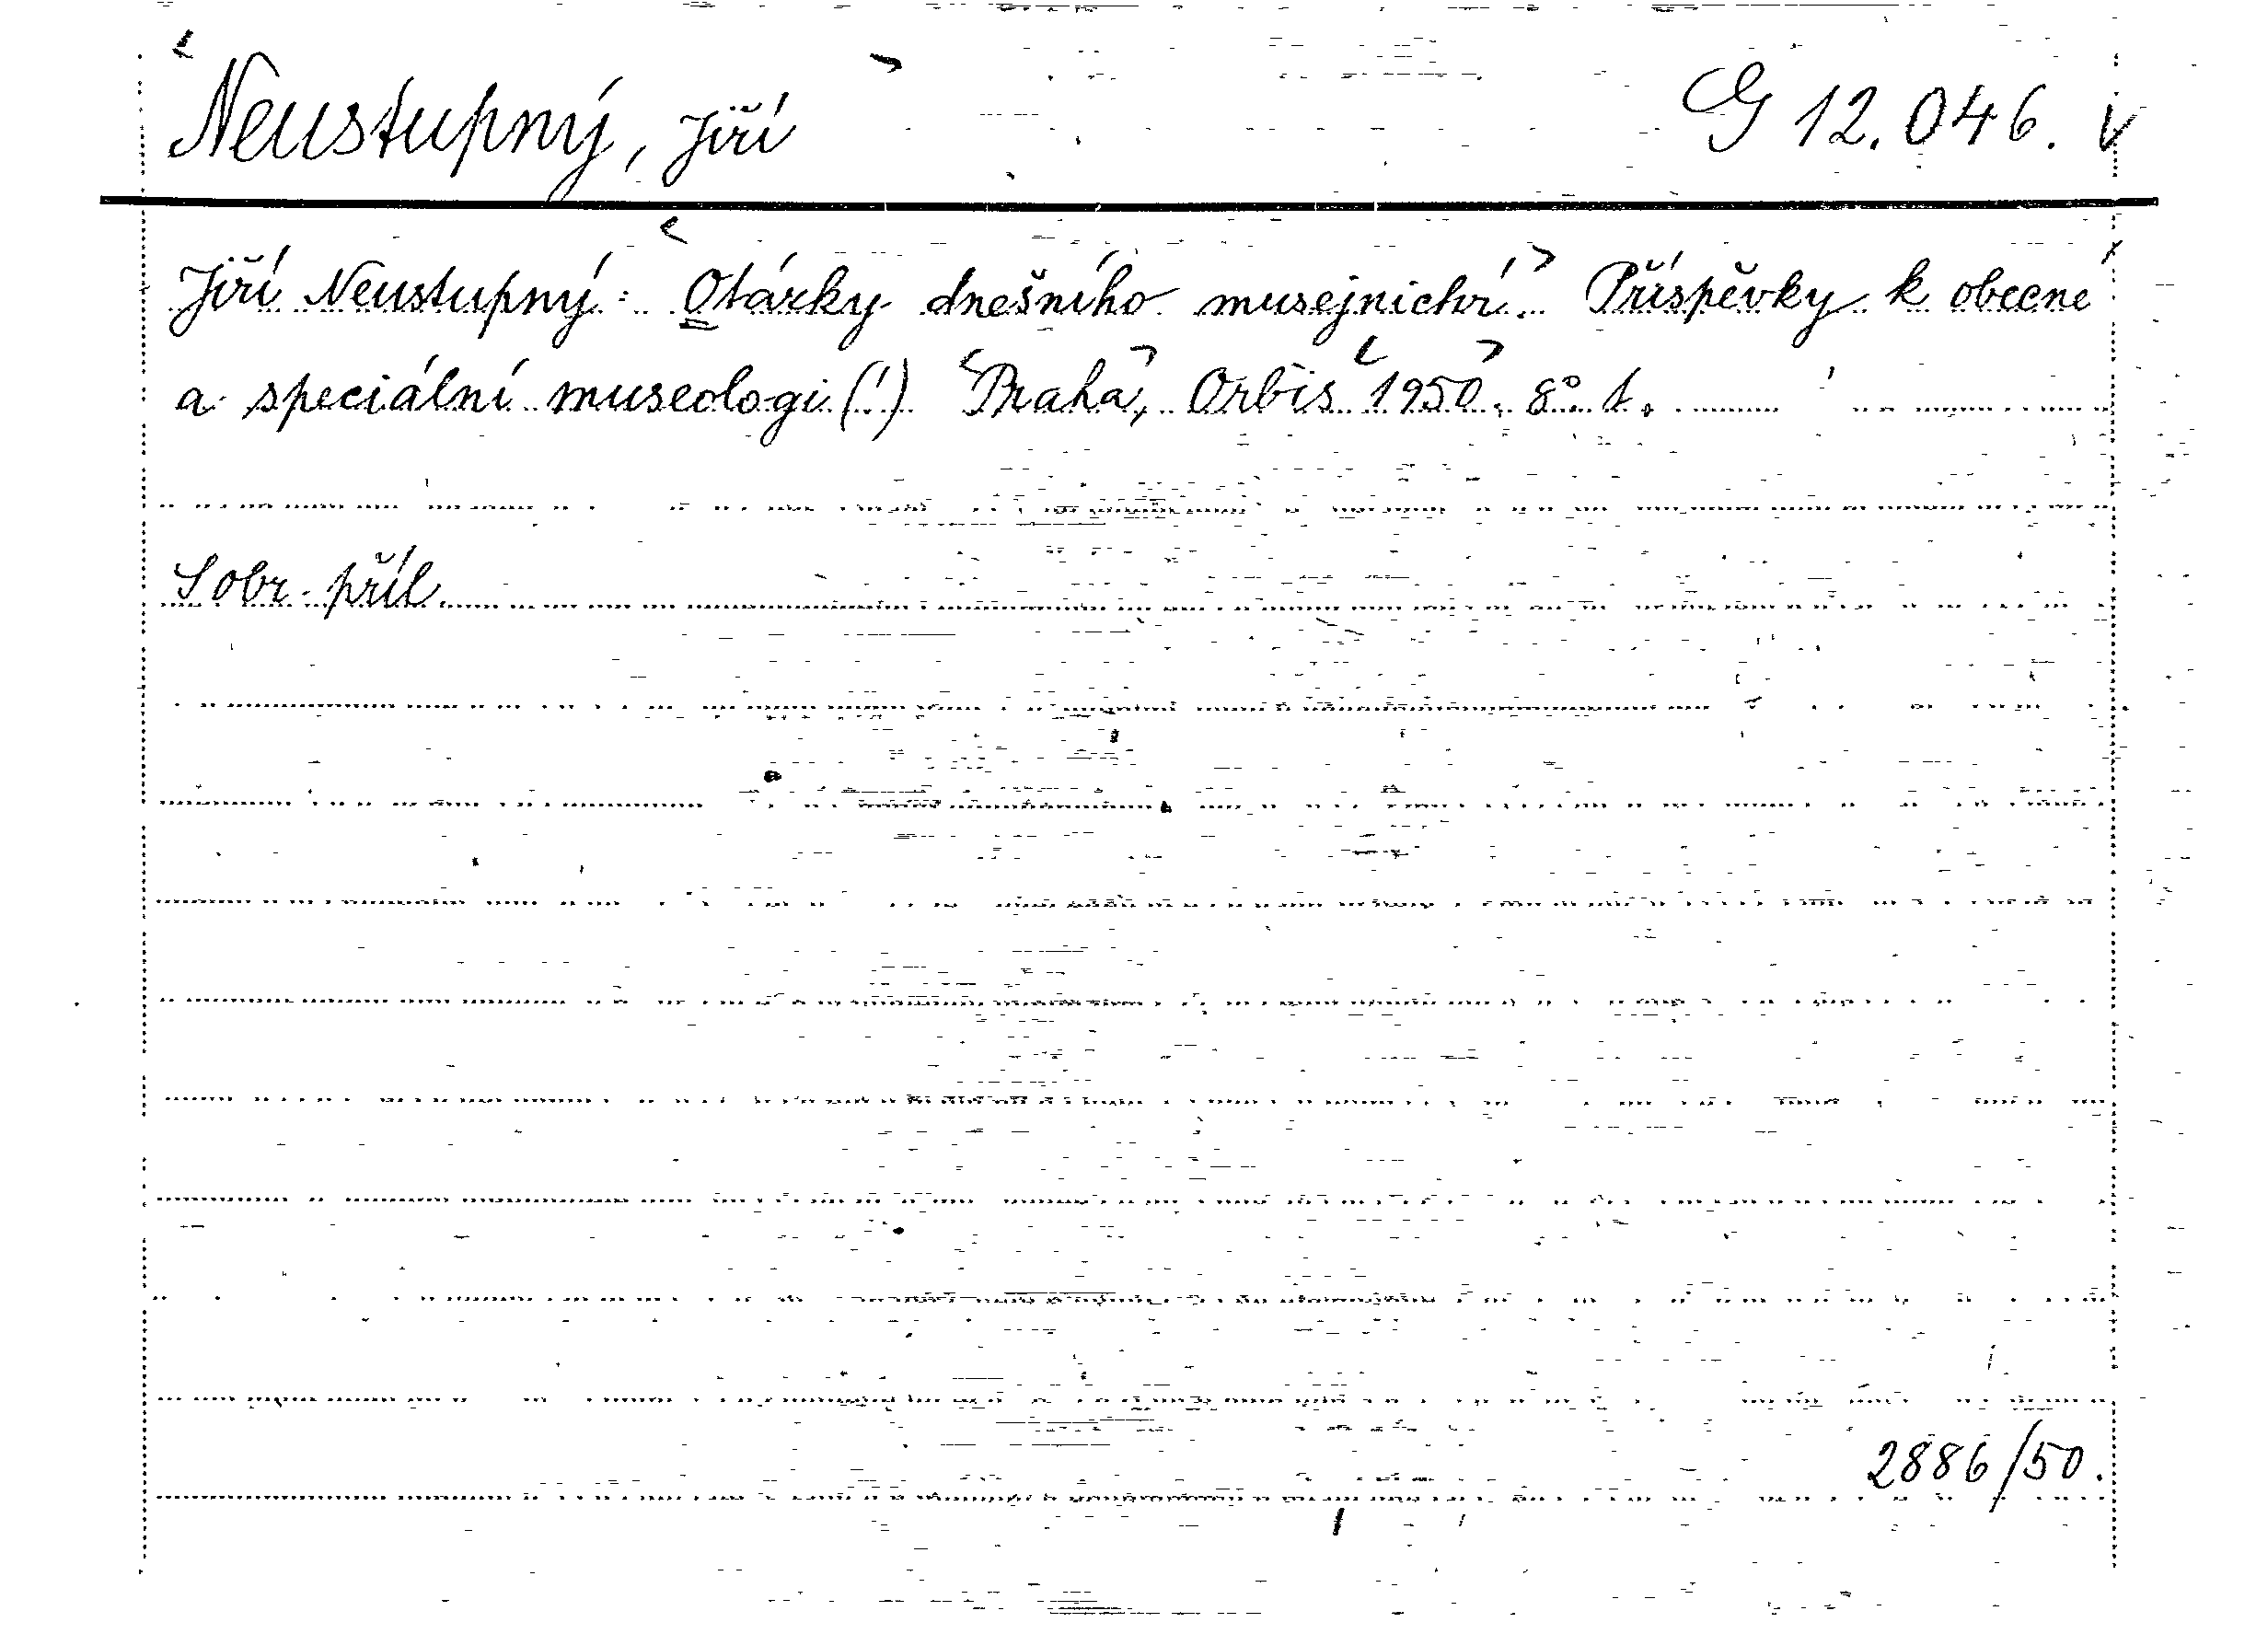 Neustupný, Jiří G 12.046. V
Jiří Neustupný: Otázky dnešního musejnictví. Příspěvky k obecné
a speciální museologi (!) Praha, Orbis 1950. 8°. t.
S obr. příl.
2886/50.